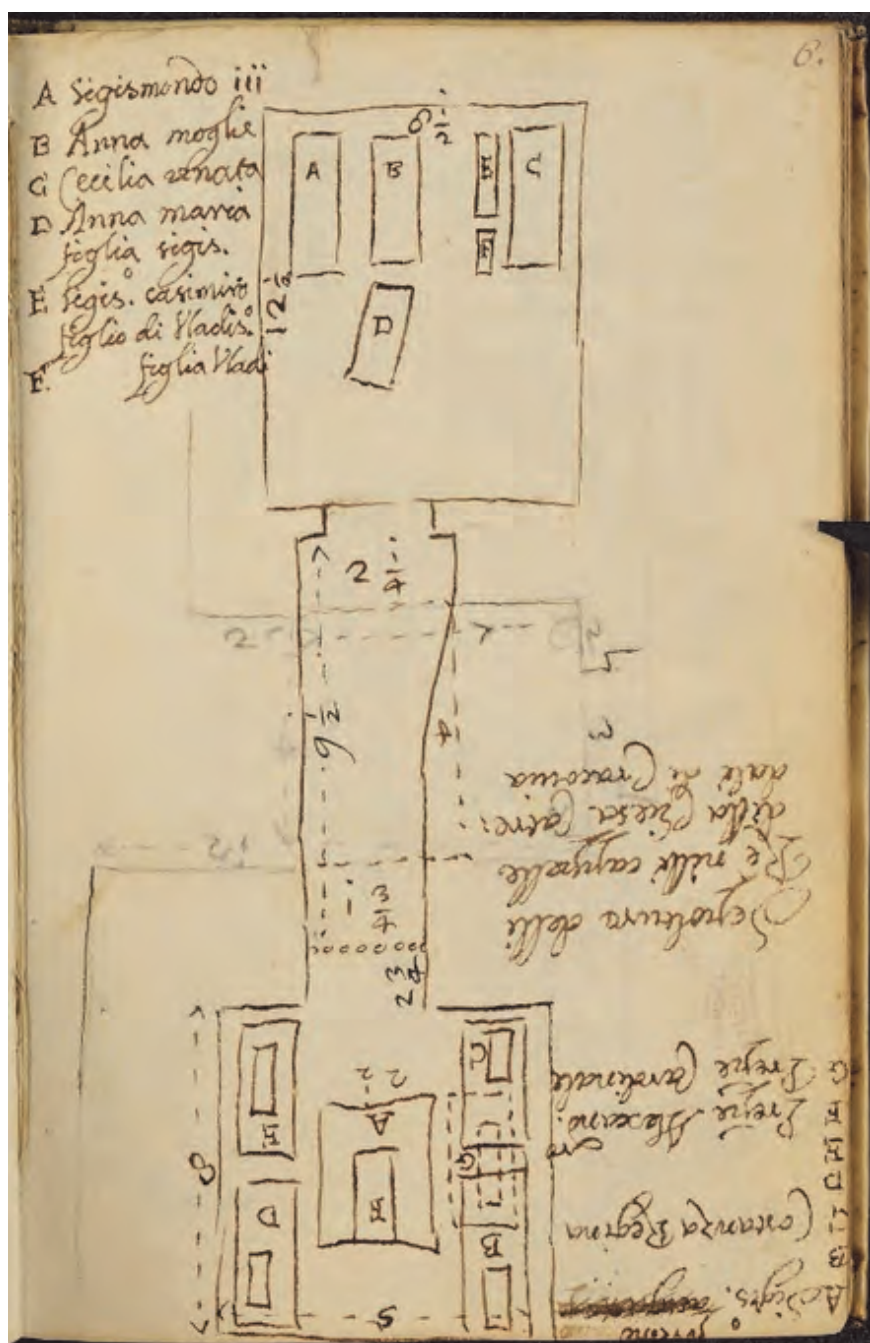 6.
A Sigismondo iii
B Anna moglie
C Cecilia renata
D Anna maria
figlia sigis.
E Sigis.º casimiro
figlio di Vladis.º
F. figlia Vladi
6 1/2
A B E C
F
D
12 1/2
2 1/4
9 1/2
4
2
12
1 3/4
2 3/4
Sepoltura delli
Rè nelli cappelle
della Chiesa Catre:
dale di Cracovia
8
2 1/2
5
F A G
C
G
D H B
A Sigis.
B
C Costanza Regina
D
E
F Preñe Alexand.ro
G Preñe Cardinale